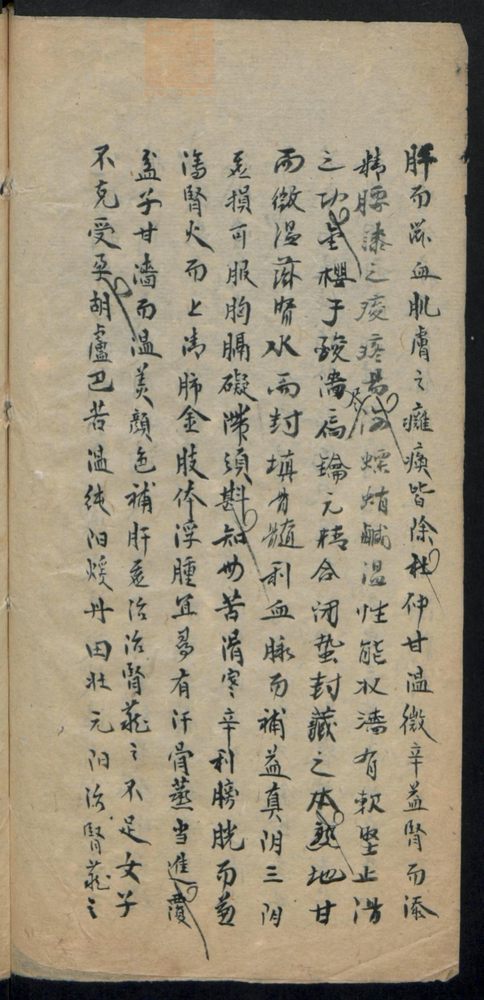 肝而滋血肌膚之癱瘓皆除杜仲甘温微辛益腎而添
精腰膝之痠疼易尽海螵蛸鹹温性能收濇有軟堅止滑
之功金櫻子酸濇扃鑰元精合闭蟄封藏之本熟地甘
而微温滋腎水而封填骨髓利血脉而補益真阴三阴
虚損可服胸膈礙滞須斟知母苦滑寒辛利膀胱而並
瀉腎火而上清肺金肢体浮腫宜多有汗骨蒸当進覆
盆子甘濇而温美顔色補肝虚治治腎之不足女子
不克受孕胡盧巴苦温纯阳煖丹田壮元阳治腎之